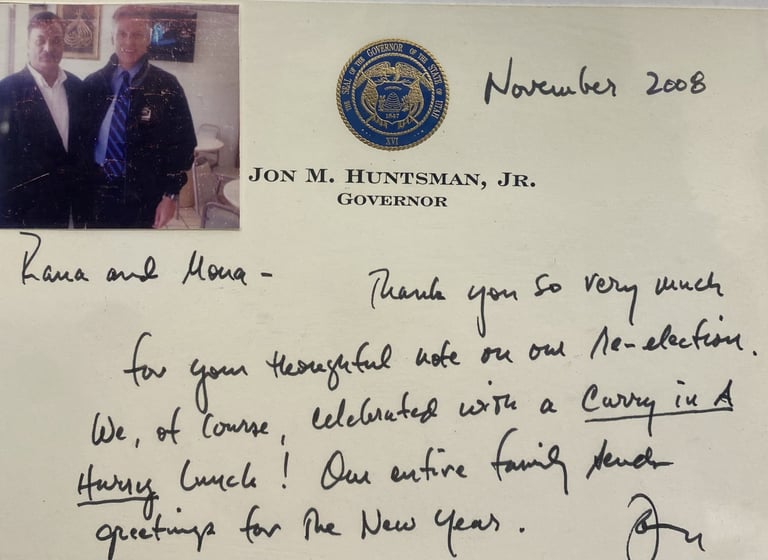 THE SEAL OF THE GOVERNOR OF THE STATE OF UTAH
1847
XVI
November 2008
JON M. HUNTSMAN, JR.
GOVERNOR
Rana and Mona -
Thank you so very much
for your thoughtful note on our re-election.
We, of course, celebrated with a Curry in A
Hurry lunch! Our entire family sends
greetings for The New Year.
Jon